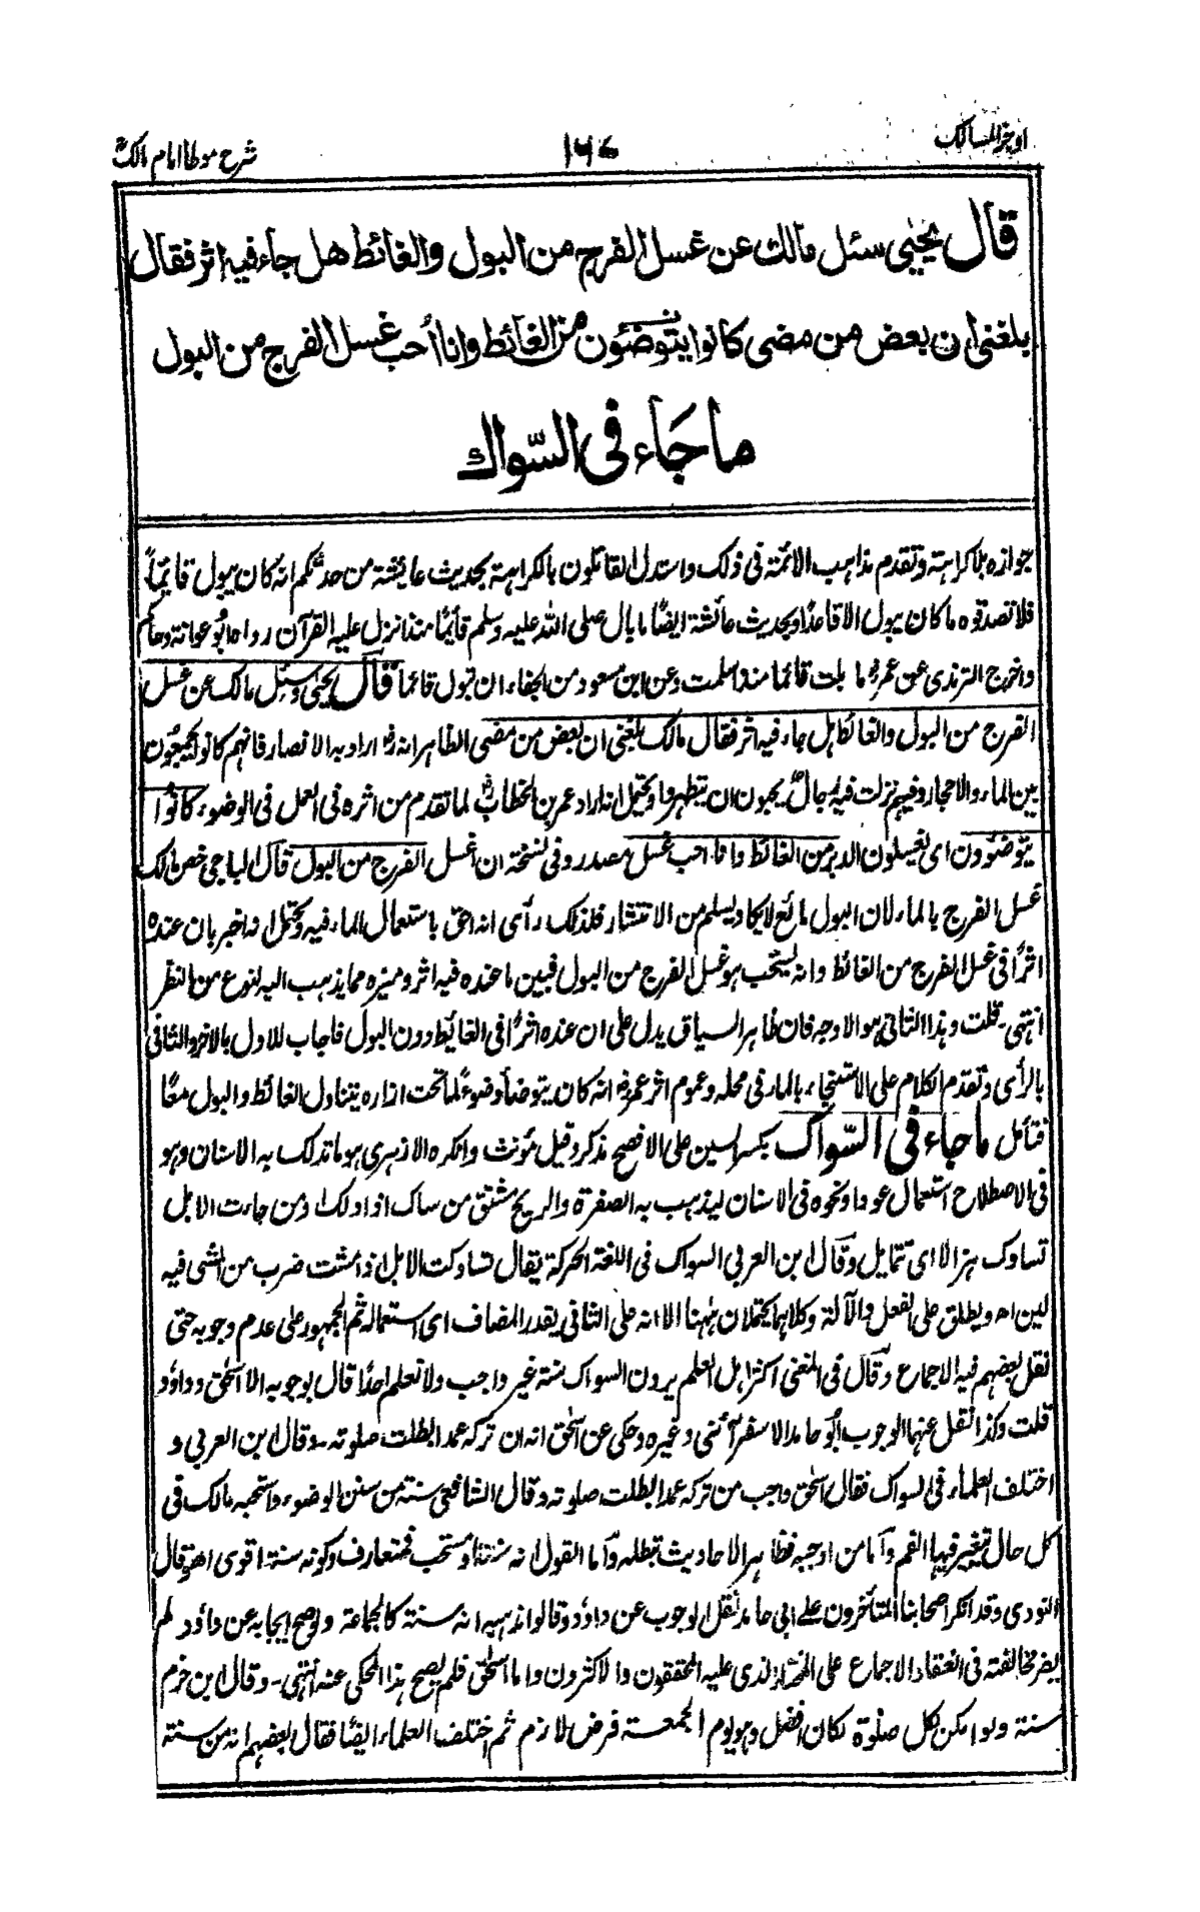 اوجز المسالک
١٦٧
شرح موطا امام مالکؒ
قال يحيى سئل مالك عن غسل الفرج من البول والغائط هل جاء فيه اثر فقال
بلغنى ان بعض من مضى كانوا يتوضئون من الغائط وانا أحب غسل الفرج من البول
ما جَاء فى السّواك
جوازه بلا كراهة وتقدم مذاهب الائمة فى ذلك واستدل القائلون بالكراهة بحديث عائشة من حدثكم انه كان يبول قائماً
فلا تصدقوه ما كان يبول الا قاعدًا وبحديث عائشة ايضًا ما بال صلى الله عليه وسلم قائمًا منذ انزل عليه القرآن رواه ابو عوانة وحاكم
واخرج الترمذى عن عمرؓ ما بلت قائما منذ اسلمت وعن ابن مسعود من الجفاء ان تبول قائما قال يحيى وسئل مالك عن غسل
الفرج من البول والغائط هل جاء فيه اثر فقال مالك بلغنى ان بعض من مضى الظاهر انهؓ اراد به الانصار فانهم كانوا يجمعون
بين الماء والاحجار وفيهم نزلت فيه رجال يحبون ان يتطهروا ويحتمل انه اراد عمر بن الخطابؓ لما تقدم من اثره فى العمل فى الوضوء كانوا
يتوضؤون اى يغسلون الدبر من الغائط وانا احب غسل مصدر وفى نسخة ان اغسل الفرج من البول قال الباجى خص مالك
غسل الفرج بالماء لان البول مائع لا يكاد يسلم من الانتشار فلذلك رأى انه احق باستعمال الماء فيه ويحتمل انه اخبر بان عنده
اثرًا فى غسل الفرج من الغائط وانه يستحب هو غسل الفرج من البول فبين ما عنده فيه اثر وميزه مما يذهب اليه لنوع من النظر
انتهى۔ قلت وهذا الثانى هو الاوجه فان ظاهر السياق يدل على ان عنده اثرًا فى الغائط دون البول فاجاب للاول بالاثر والثانى
بالرأى وتقدم الكلام على الاستنجاء بالماء فى محله وعموم اثر عمرؓ انه كان يتوضأ وضوءً لما تحت ازاره يتناول الغائط والبول معًا
فتأمل ما جاء فى السّواك بكسر السين على الافصح مذكر وقيل مؤنث وانكره الازهرى هو ما تدلك به الاسنان وهو
فى الاصطلاح استعمال عود او نحوه فى الاسنان ليذهب به الصفرة والريح مشتق من ساك اذا دلك ومن جاءت الابل
تساوك هزالا اى تتمايل وقال ابن العربى السواك فى اللغة الحركة يقال تساوكت الابل اذا مشت ضرب من المشى فيه
لين اھ ويطلق على الفعل والآلة وكلاهما يحتملان ههنا الا انه على الثانى يقدر المضاف اى استعماله ثم الجمهور على عدم وجوبه حتى
نقل بعضهم فيه الاجماع وقال فى المغنى اكثر اهل العلم يرون السواك سنة غير واجب ولا نعلم احدًا قال بوجوبه الا اسحٰق وداؤد
قلت وكذا نقل عنهما الوجوب ابو حامد الاسفرآئنى وغيره وحكى عن اسحٰق انه ان تركه عمدا بطلت صلوته۔ وقال ابن العربى و
اختلف العلماء فى السواك فقال اسحٰق واجب من تركه عمدا بطلت صلوته وقال الشافعى سنة من سنن الوضوء واستحبه مالك فى
كل حال تتغير فيها الفم وأما من اوجبه فظاهر الاحاديث تبطله وأما القول انه سنة او مستحب فمتعارف وكونه سنة اقوى اھ وقال
النووى وقد انكر اصحابنا المتأخرون على ابى حامد نقل الوجوب عن داؤد وقالوا مذهبه انه سنة كالجماعة ولو صح ايجابه عن داؤد لم
يضر مخالفته فى انعقاد الاجماع على المختار الذى عليه المحققون والاكثرون واما اسحٰق فلم يصح هذا المحكى عنه انتهى۔ وقال ابن حزم
سنة ولو امكن لكل صلوة لكان افضل وهو يوم الجمعة فرض لازم ثم اختلف العلماء ايضًا فقال بعضهم انه من سنة